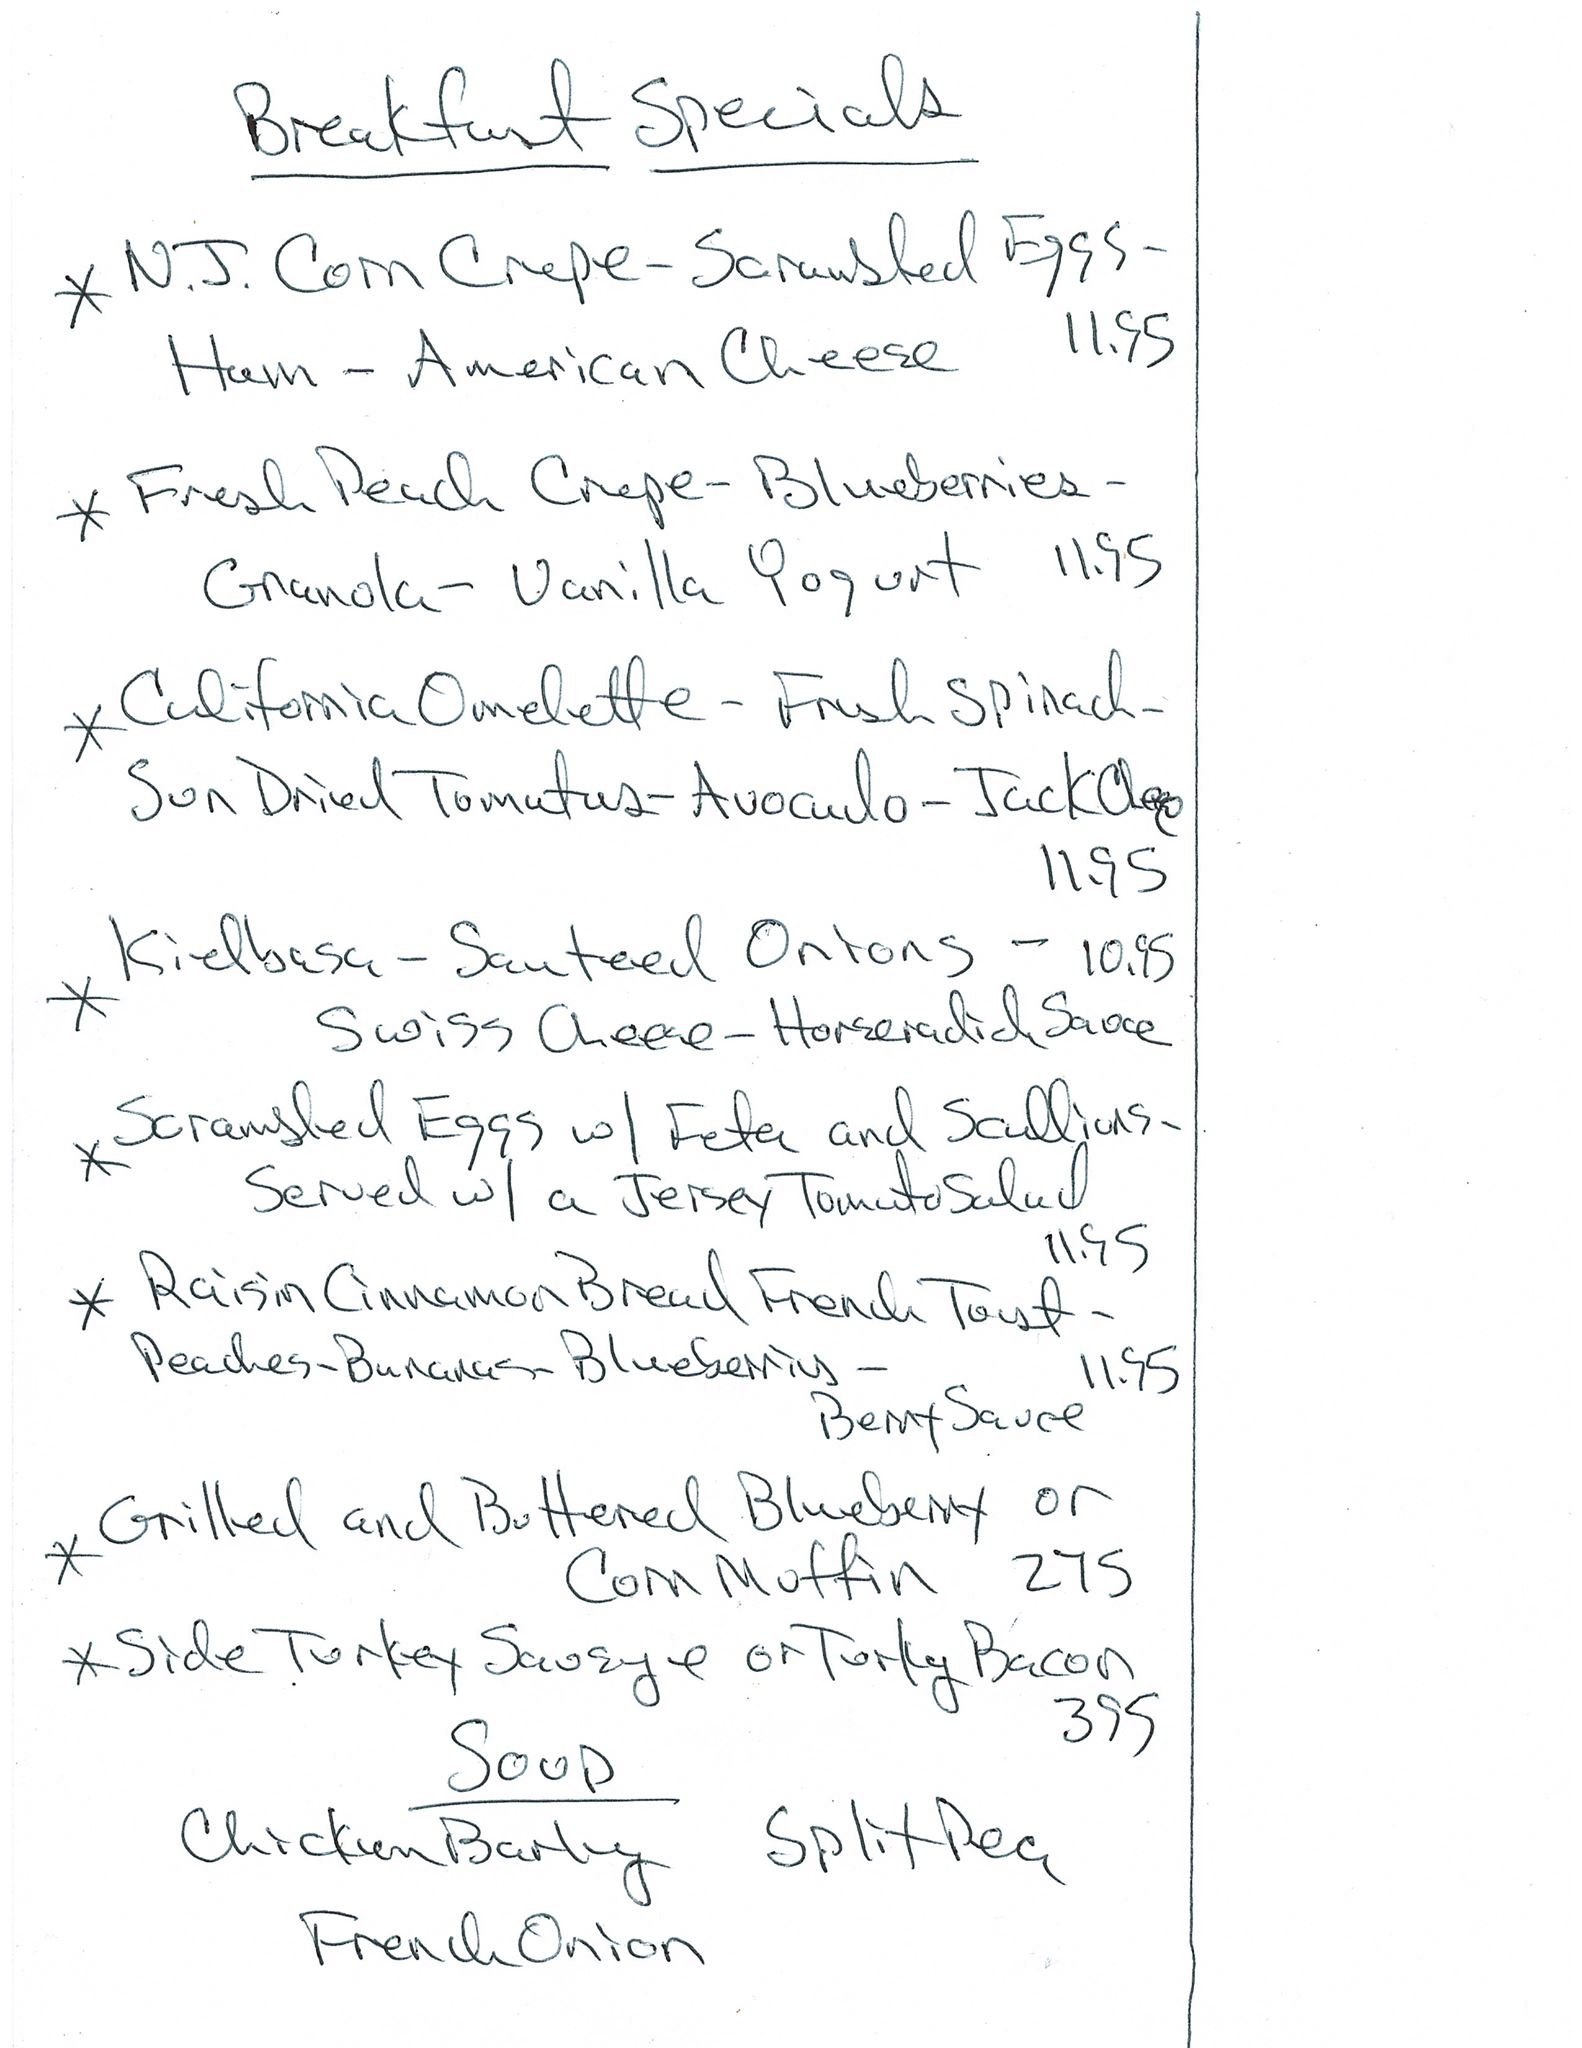 Breakfast Specials
* N.J. Corn Crepe - Scrambled Eggs -
Ham - American Cheese 11.95
* Fresh Peach Crepe - Blueberries -
Granola - Vanilla Yogurt 11.95
* California Omelette - Fresh Spinach -
Sun Dried Tomatoes - Avocado - Jack Cheese
11.95
* Kielbasa - Sauteed Onions - 10.95
Swiss Cheese - Horseradish Sauce
* Scrambled Eggs w/ Feta and Scallions -
Served w/ a Jersey Tomato Salad
11.95
* Raisin Cinnamon Bread French Toast -
Peaches - Bananas - Blueberries - 11.95
Berry Sauce
* Grilled and Buttered Blueberry or
Corn Muffin 275
* Side Turkey Sausage or Turkey Bacon
395
Soup
Chicken Barley Split Pea
French Onion